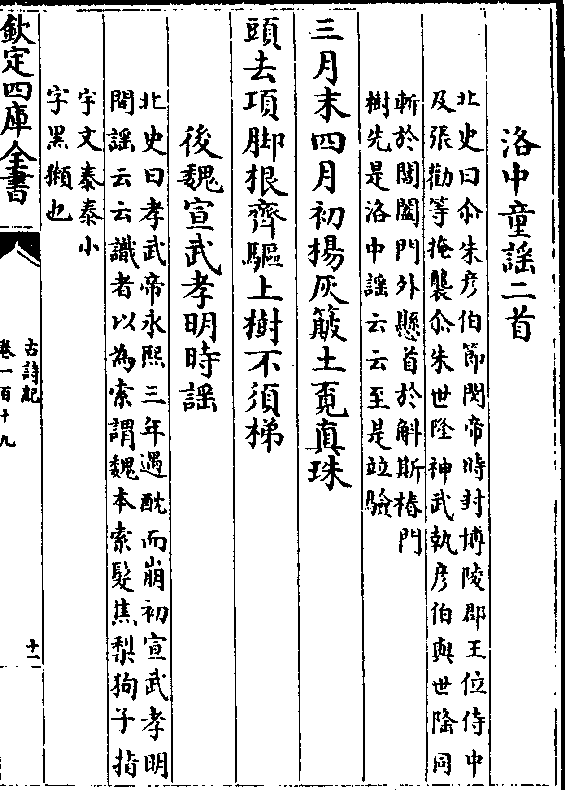 洛中童謡二首
北史曰尒朱彦伯節閔帝時封博陵郡王位侍中
及張勸等掩襲尒朱世隆神武執彦伯與世隆同
斬於閶闔門外懸首於斛斯椿門
樹先是洛中謡云云至是竝驗
三月末四月初揚灰簸土覓真珠
頭去項脚根齊驅上樹不須梯
後魏宣武孝明時謡
北史曰孝武帝永熙三年遇酖而崩初宣武孝明
間謡云云識者以為索謂魏本索髮焦梨狗子指
宇文泰泰小
字黒獺也
欽定四庫全書
古詩紀
卷一百十九
十一